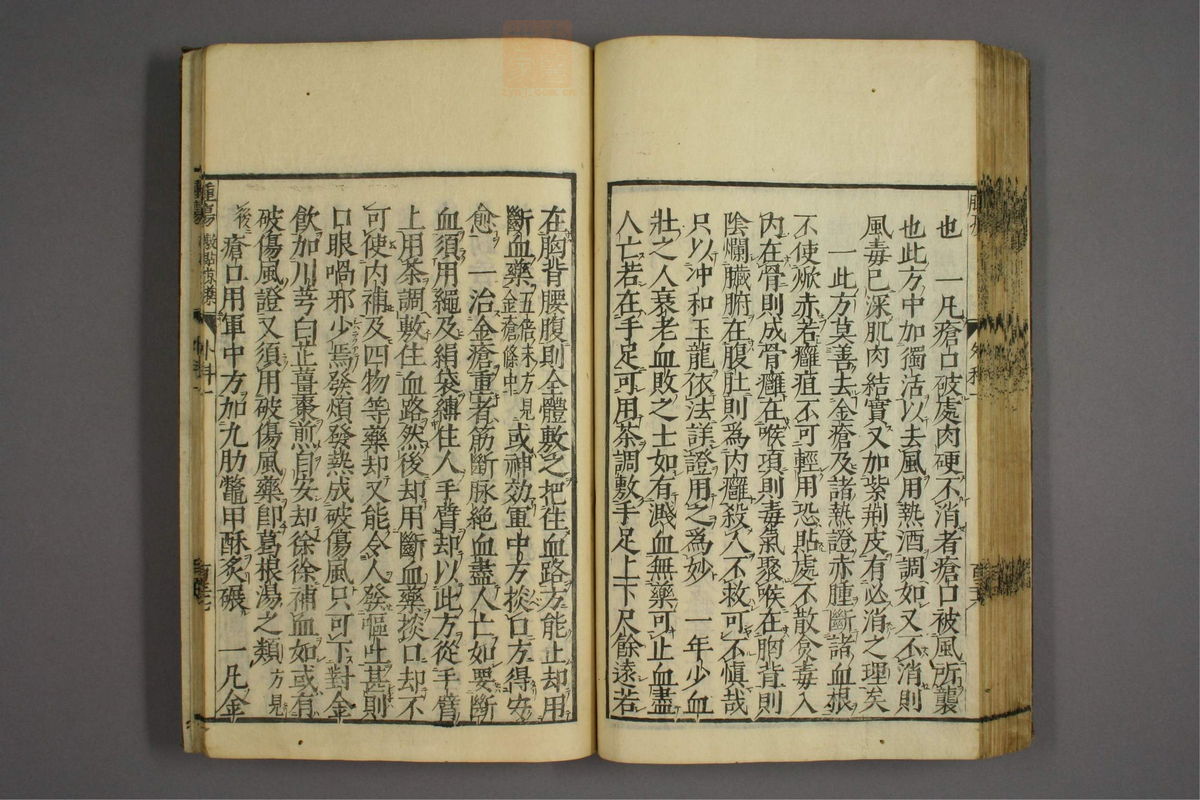 也　一凡瘡口破處肉硬不消者瘡口被風所襲
也此方中加獨活以去風用熱酒調如又不消則
風毒已深肌肉結實又加紫荆皮有必消之理矣
一此方莫善去金瘡及諸熱證赤腫斷諸血根
不使焮赤若癰疽不可輕用恐貼處不散食毒入
內在骨則成骨癰在喉項則毒氣聚喉在胸背則
陰爛臟腑在腹肚則爲內癰殺人不救可不愼哉
只以冲和玉龍依法詳證用之爲妙　一年少血
壯之人衰老血敗之士如有濺血無藥可止血盡
人亡若在手足可用茶調敷手足上下尺餘遠若
在胸背腰腹則全體敷之把住血路方能止却用
斷血藥五倍末方見金瘡條中或神効軍中方掞口方得安
愈　一治金瘡重者筋斷脉絶血盡人亡如要斷
血須用繩及絹袋縛住人手臂却以此方從手臂
上用茶調敷住血路然後却用斷血藥掞口却不
可使內補及四物等藥却又能令人發嘔吐甚則
口眼喎邪少焉發煩發熱成破傷風只可下對金
飲加川芎白芷薑棗煎自安却徐徐補血如或有
破傷風證又須用破傷風藥卽葛根湯之類方見
後瘡口用軍中方加九肋鼈甲酥炙碾　一凡金
外科一